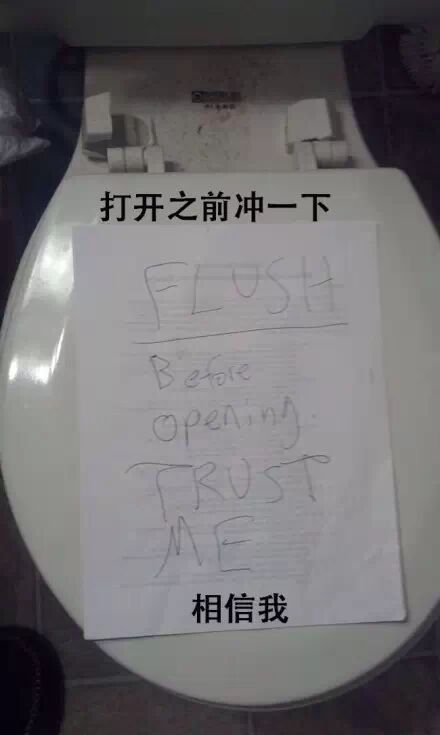 打开之前冲一下
FLUSH
Before
opening.
TRUST
ME
相信我